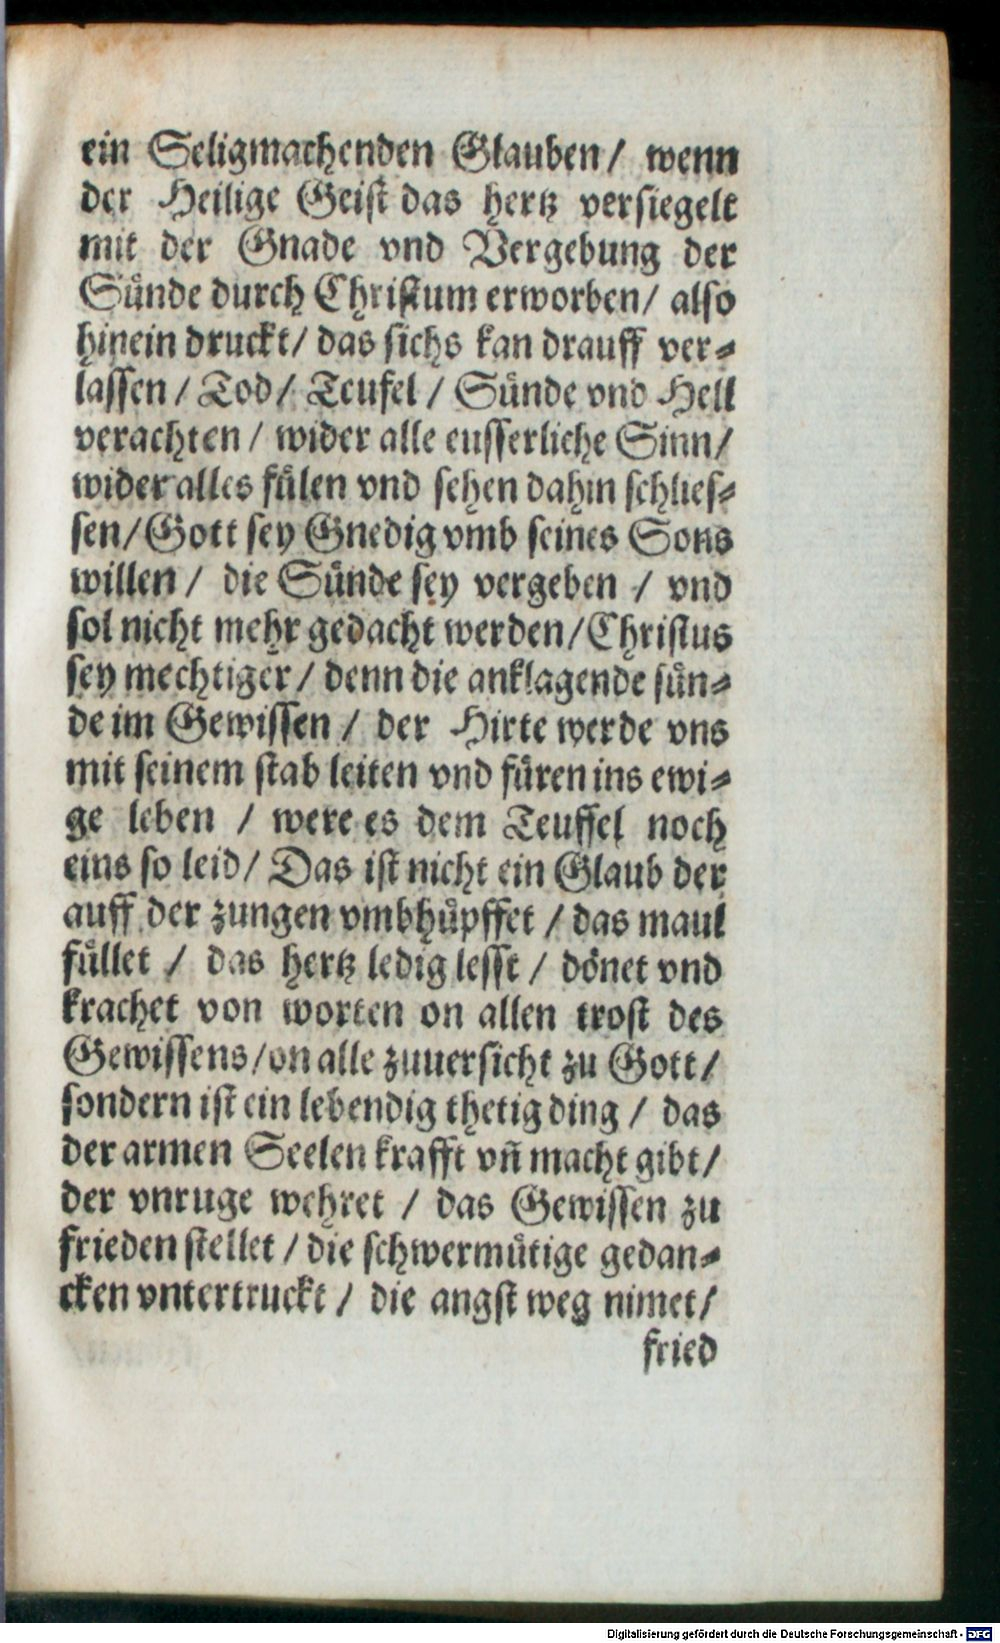 ein Seligmachenden Glauben/ wenn
der Heilige Geist das hertz versiegelt
mit der Gnade vnd Vergebung der
Sünde durch Christum erworben/ also
hinein druckt/ das sichs kan drauff ver⸗
lassen / Tod/ Teufel / Sünde vnd Hell
verachten / wider alle eusserliche Sinn/
wider alles fülen vnd sehen dahin schlies⸗
sen/Gott sey Gnedig vmb seines Sons
willen / die Sünde sey vergeben / vnd
sol nicht mehr gedacht werden/Christus
sey mechtiger / denn die anklagende sün⸗
de im Gewissen / der Hirte werde vns
mit seinem stab leiten vnd füren ins ewi⸗
ge leben / were es dem Teuffel noch
eins so leid/ Das ist nicht ein Glaub der
auff der zungen vmbhüpffet / das maul
füllet / das hertz ledig lesst / dönet vnd
krachet von worten on allen trost des
Gewissens/on alle zuuersicht zu Gott/
sondern ist ein lebendig thetig ding / das
der armen Seelen krafft vñ macht gibt/
der vnruge wehret / das Gewissen zu
frieden stellet / die schwermütige gedan⸗
cken vntertruckt / die angst weg nimet/
fried
Digitalisierung gefördert durch die Deutsche Forschungsgemeinschaft - DFG